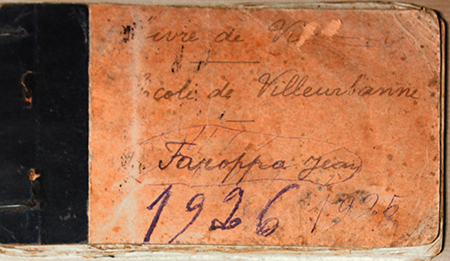 ivre de V
Ecole de Villeurbanne
Faroppa Jean
1926 1925